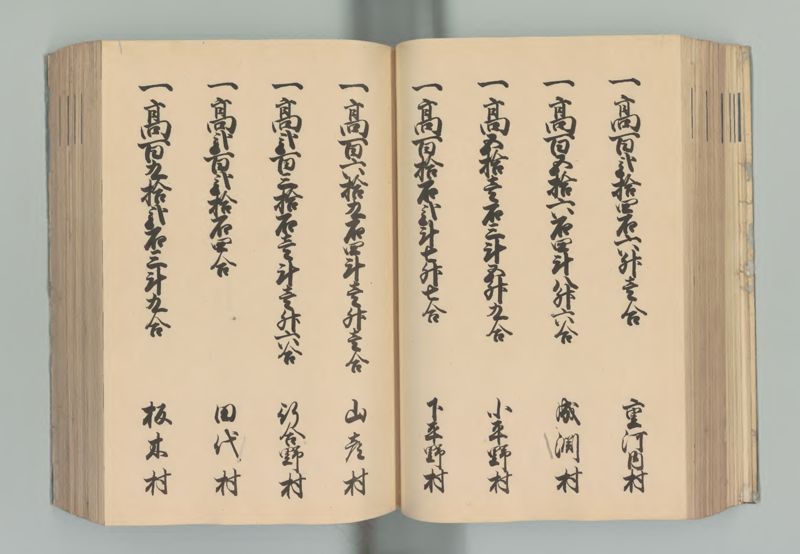 一高百弐拾四石六升壱合 重河内村
一高百五拾六石四斗八升六合 成渕村
一高五拾壱石三斗五升九合 小平野村
一高百拾石弐斗七升七合 下平野村
一高百六拾九石四斗壱升壱合 山彦村
一高弐百三拾石壱斗壱升六合 行合野村
一高弐百弐拾石四合 田代村
一高百九拾弐石三斗九合 板木村